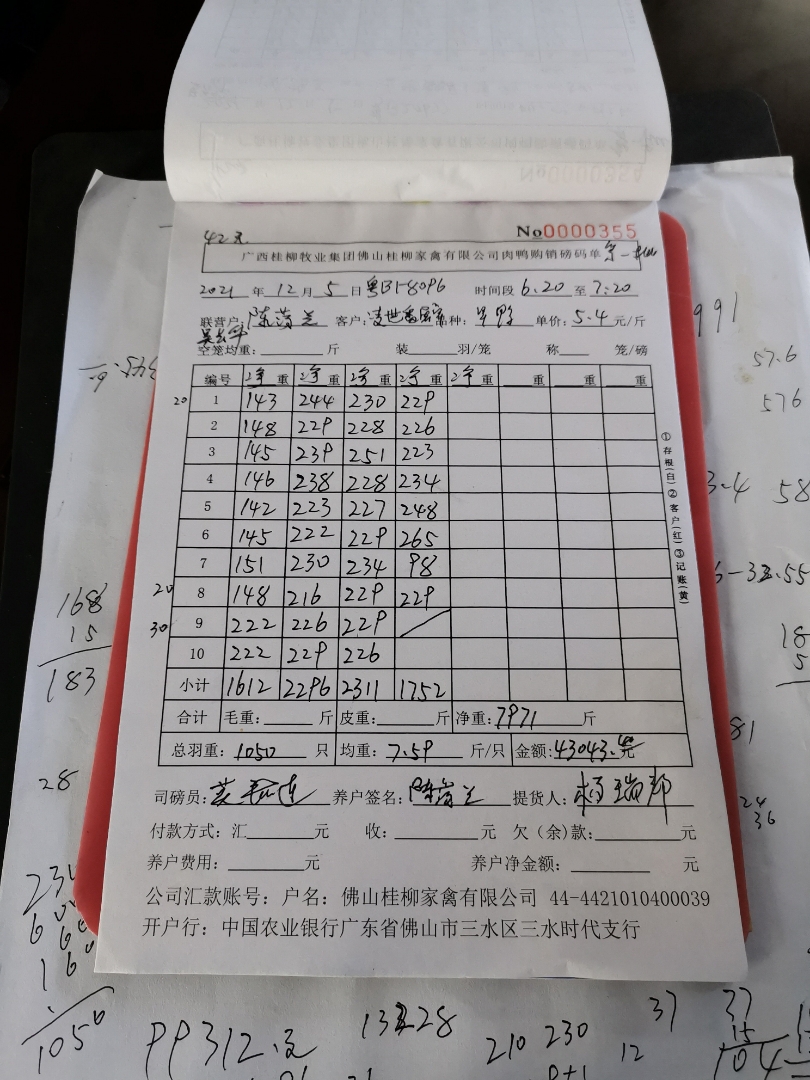 42天
No0000355
广西桂柳牧业集团佛山桂柳家禽有限公司肉鸭购销磅码单
2021 年 12 月 5 日 粤B158096 时间段 6.20 至 7:20
联营户: 陈 兰 客户: 品种: 单价: 5.4 元/斤
空笼均重: 斤 装 羽/笼 称 笼/磅
编号 净重 净重 净重 净重 净重 重 重 重
20 1 143 244 230 229
2 148 229 228 226
3 145 239 251 223
4 146 238 228 234
5 142 223 227 248
6 145 222 229 265
7 151 230 234 98
20 8 148 216 229 229
30 9 222 226 229
10 222 229 226
小计 1612 2296 2311 1752
合计 毛重: 斤 皮重: 斤 净重: 7971 斤
总羽重: 1050 只 均重: 7.59 斤/只 金额: 43043.4元
司磅员: 养户签名: 陈 兰 提货人: 杨瑞
付款方式: 汇 元 收: 元 欠(余)款: 元
养户费用: 元 养户净金额: 元
公司汇款账号: 户名: 佛山桂柳家禽有限公司 44-4421010400039
开户行: 中国农业银行广东省佛山市三水区三水时代支行
①存根(白)②客户(红)③记账(黄)
991
57.6
576
3.4 58
6-33.55
18
5
81
24
36
168
15
183
28
1050
37 37
15
104
210 230
12